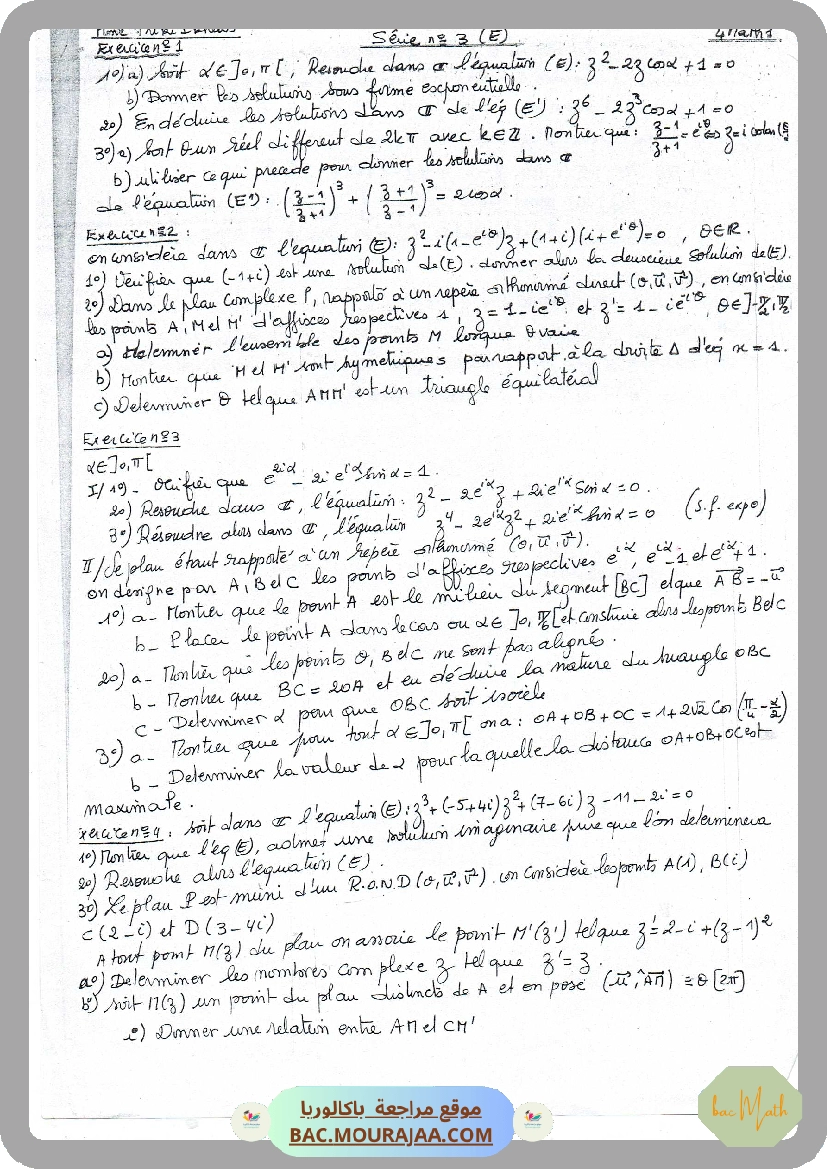 Série n° 3 (E)
4 Maths
Exercice n° 1
1°) a) Soit α ∈ ]0, π[, Resoudre dans ℂ l'équation (E): z² - 2z cosα + 1 = 0
b) Donner les solutions sous forme exponentielle.
2°) En déduire les solutions dans ℂ de l'éq (E') : z⁶ - 2z³cosα + 1 = 0
3°) a) Soit θ un réel different de 2kπ avec k∈ℤ. Montrer que: (z-1)/(z+1) = e^{iθ} ⇔ z = i cotan(θ/2
b) utiliser ce qui precede pour donner les solutions dans ℂ
de l'équation (E'): ((z-1)/(z+1))³ + ((z+1)/(z-1))³ = 2cosα.
Exercice n° 2 :
on considère dans ℂ l'equation (E): z² - i(1-e^{iθ})z + (1+i)(i+e^{iθ}) = 0 , θ∈ℝ.
1°) Vérifier que (-1+i) est une solution de (E). donner alors la deuxième solution de (E).
2°) Dans le plan complexe P, rapporté à un repère orthonormé direct (o, u, v), on considère
les points A, M et M' d'affixes respectives 1, z = 1 - ie^{iθ} et z' = 1 - ie^{-iθ}, θ ∈ ]-π/2, π/2[
a) determiner l'ensemble des points M lorsque θ varie
b) Montrer que M et M' sont symetriques par rapport à la droite Δ d'eq x = 1.
c) Determiner θ tel que AMM' est un triangle équilatéral
Exercice n° 3
α ∈ ]0, π[
I/ 1°) - Vérifier que e^{2iα} - 2i e^{iα} sinα = 1.
2°) Resoudre dans ℂ, l'équation : z² - 2e^{iα}z + 2ie^{iα} sinα = 0.
3°) Résoudre alors dans ℂ, l'équation z⁴ - 2e^{iα}z² + 2ie^{iα} sinα = 0 (s.f. expo)
II/ Le plan étant rapporté à un repère orthonormé (o, u, v).
on designe par A, B et C les points d'affixes respectives e^{iα}, e^{iα}-1 et e^{iα}+1.
1°) a - Montrer que le point A est le milieu du segment [BC] et que AB = -u
b - Placer le point A dans le cas ou α ∈ ]0, π/6[ et construire alors les points B et C
2°) a - Montrer que les points O, B et C ne sont pas alignés.
b - Montrer que BC = 2OA et en déduire la nature du triangle OBC
c - Determiner α pour que OBC soit isocèle
3°) a - Montrer que pour tout α ∈ ]0, π[ on a : OA + OB + OC = 1 + 2√2 cos(π/4 - α/2)
b - Determiner la valeur de α pour la quelle la distance OA + OB + OC est
maximale.
Exercice n° 4 : soit dans ℂ l'équation (E): z³ + (-5+4i)z² + (7-6i)z - 11 - 2i = 0
1°) Montrer que l'éq (E), admet une solution imaginaire pure que l'on determinera
2°) Resoudre alors l'equation (E).
3°) Le plan P est muni d'un R.O.N.D (o, u, v). on considère les points A(1), B(i)
C(2-i) et D(3-4i)
A tout point M(z) du plan on associe le point M'(z') tel que z' = 2-i + (z-1)²
a°) Determiner les nombres complexe z tel que z' = z.
b°) soit M(z) un point du plan distincts de A et on pose (u, AM) ≡ θ [2π]
i°) Donner une relation entre AM et CM'
موقع مراجعة باكالوريا
BAC.MOURAJAA.COM
bac Math